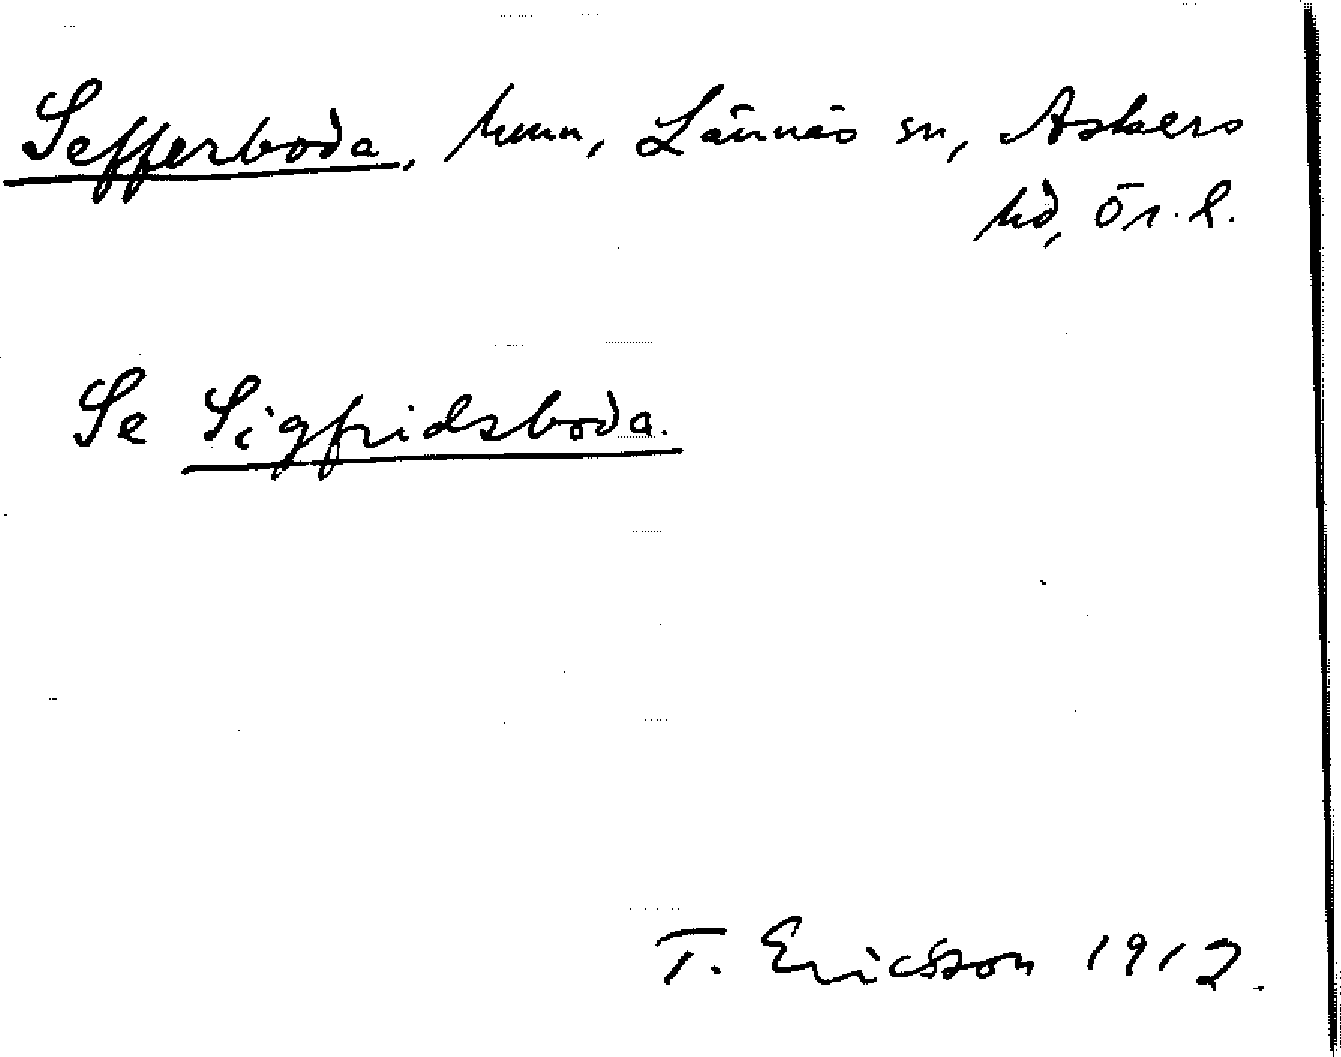 Sefferboda, hmn, Lännäs sn, Askers
hd, Ör. l.
Se Sigfridsboda.
T. Ericsson 1912.